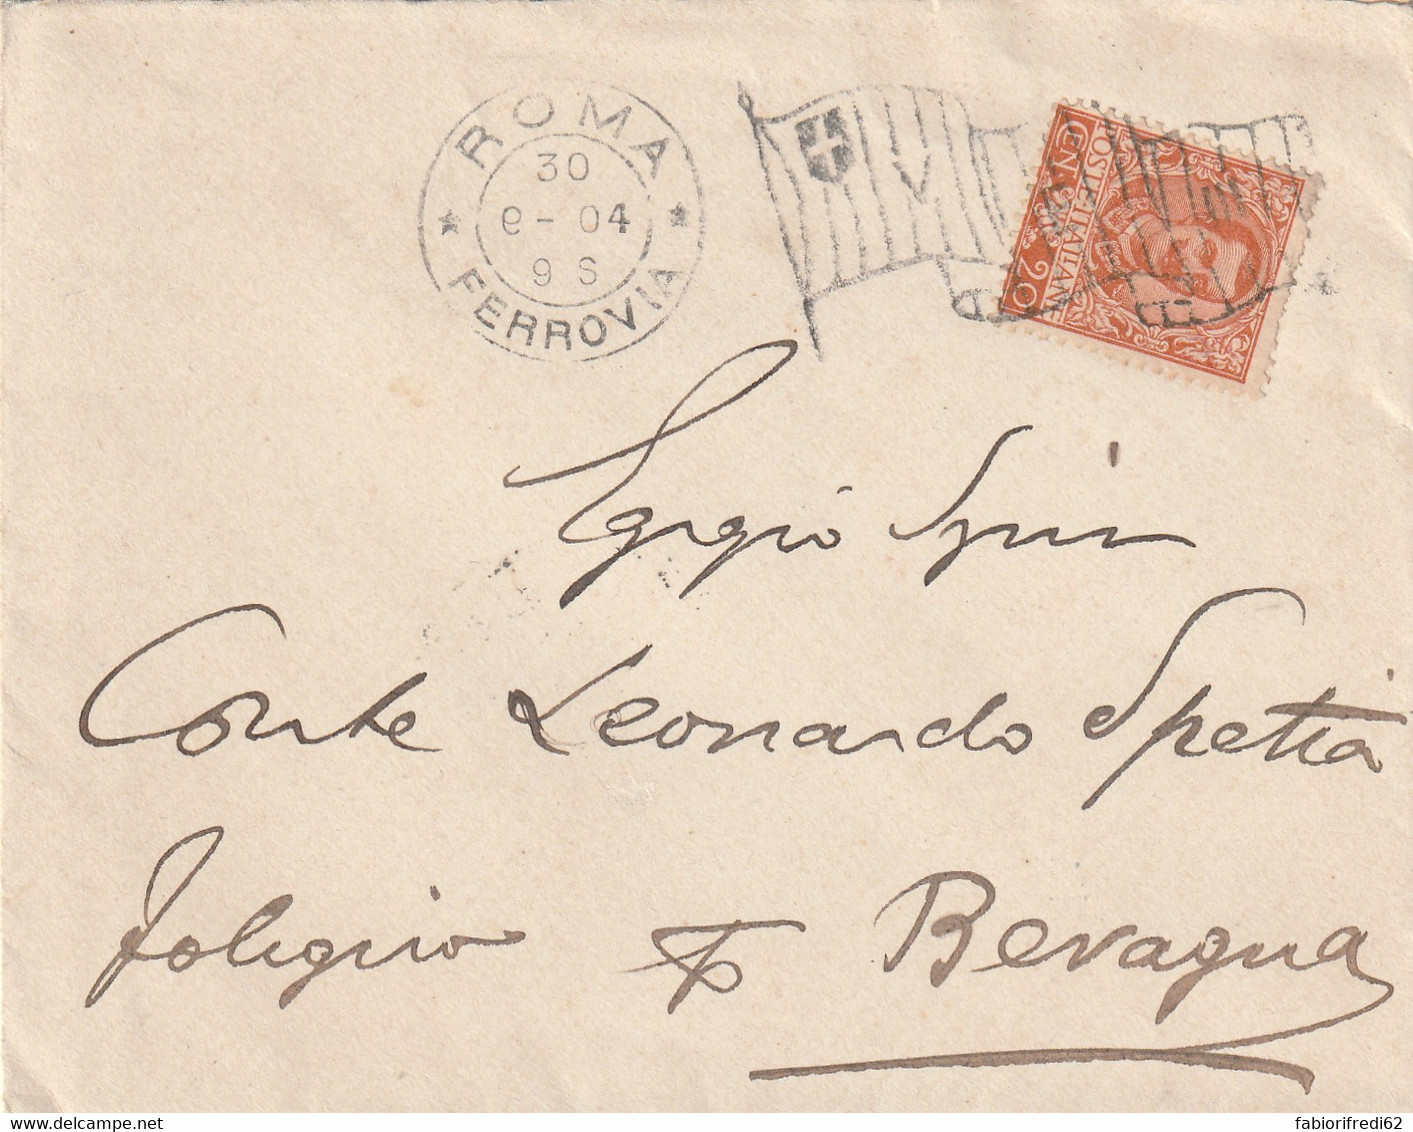 ROMA
30
9 - 04
9 S
FERROVIA
POSTE ITALIANE
CN. 20
20
Conte Leonardo Spetia
Foligno
Bevagna
delcampe.net
fabiorifredi62